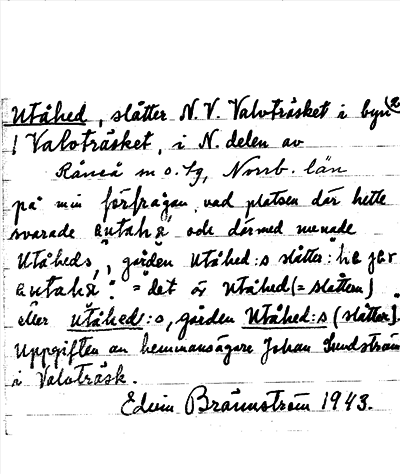 Utåhed, slåtter N.V. Valvträsket i byn
Valvträsket, i N. delen av
Råneå m o. tg, Norrb. län
på min förfrågan, vad platsen där hette
svarade
och därmed menade
Utåheds, gården Utåhed:s slåtter:
= det är Utåhed (= slåttern)
eller utåhed:s, gården Utåhed:s (slåtter).
Uppgiften av hemmansägare Johan Sundström
i Valvträsk.
Edvin Brännström 1943.